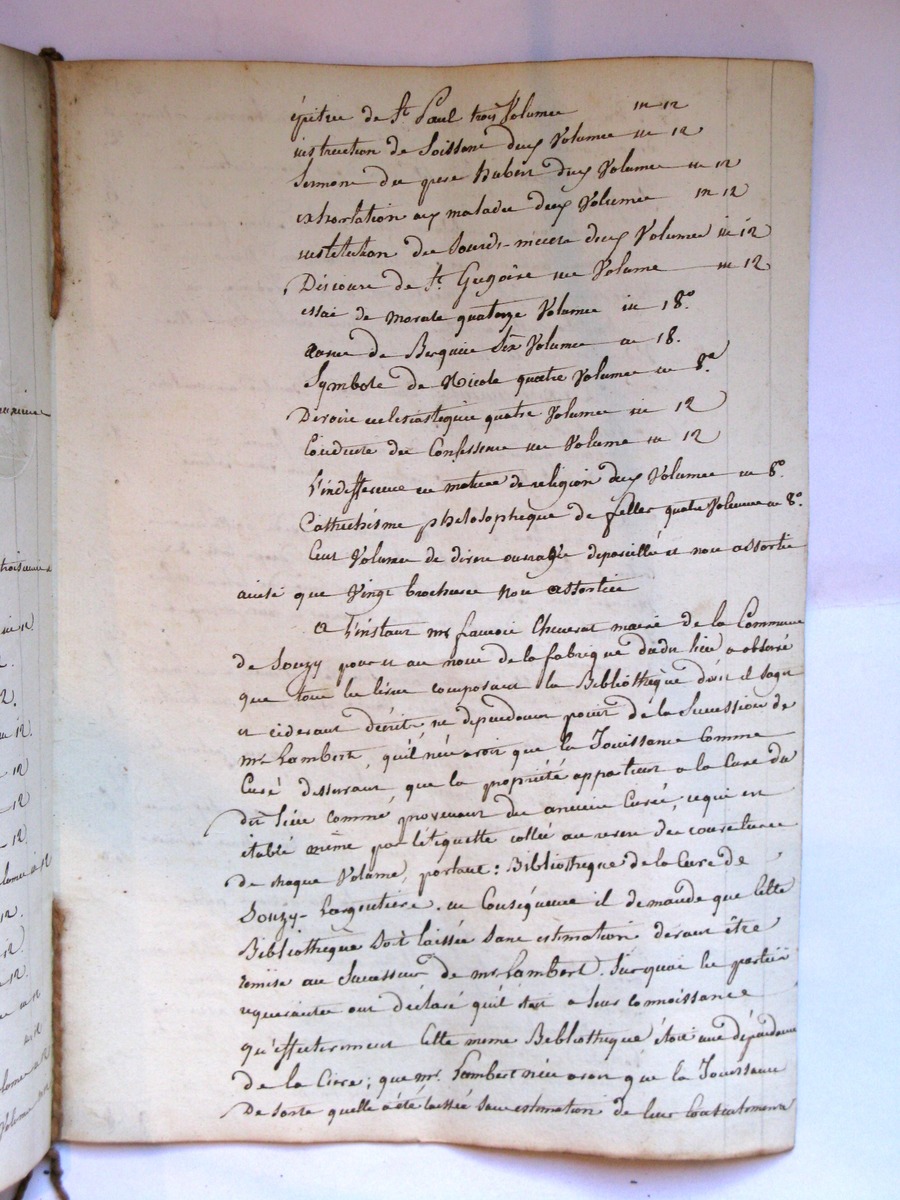 épitres de St Paul trois Volumes in 12
instruction de Soissons deux Volumes in 12
Sermons du pere hubert deux Volumes in 12
exhortation aux malades deux Volumes in 12
institution des Sourds-muets deux Volumes in 12
Discours de St. Gregoire un Volume in 12
essais de morale quatorze Volumes in 18º
de Berquin Six Volumes in 18.
Symbole de Nicole quatre Volumes in 8º
Devoirs eclesiastiques quatre Volumes in 12
Conduite des Confesseurs un Volume in 12
l'indifference en matiere de religion deux Volumes in 8º.
Cathechisme philosophique de feller quatre Volumes in 8º.
Cent Volumes de divers ouvrages depareillés et non assortis
ainsi que Vingt brochures non assorties
a l'instant mr francois Chevrat maire de la Commune
de Souzy pour et au nom de la fabrique dudit lieu a observé
que tous les livres composant la Bibliothèque dont il sagit
et cidevant décrits, ne dependoient point de la Succession de
mr. Lambert, qu'il n'en avoit que la Jouissance comme
Curé desservant, que la propriété appartient a la Cure du
dit lieu comme provenant des anciens Curés, cequi est
établi même par l'étiquette collée au revers des couvertures
de chaque Volume, portant: Bibliotheque de la Cure de
Souzy-Largentiere. en Conséquence il demande que Cette
Bibliothèque soit laissée sans estimation devant être
remise au Successeur de mr. Lambert. Surquoi les parties
requerantes ont déclaré qu'il etoit a leur connoissance
qu'effectivement Cette meme Bibliotheque étoit une dépendance
de la Cure; que mr. Lambert n'en avoit que la Jouissance
De sorte quelle a été laissée sans estimation de leur Consentement